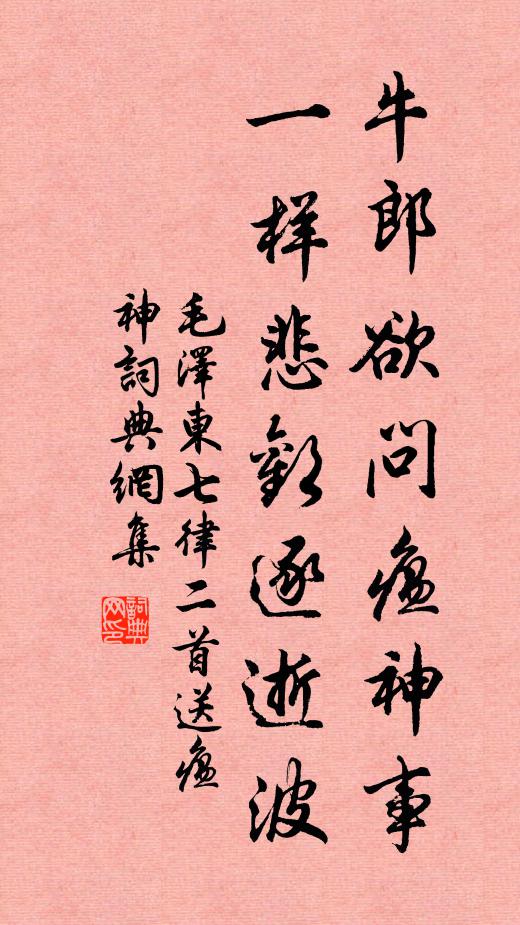 牛郎欲問瘟神事
一樣悲歡逐逝波
毛澤東七律二首送瘟
神詞典網集
詞典网印